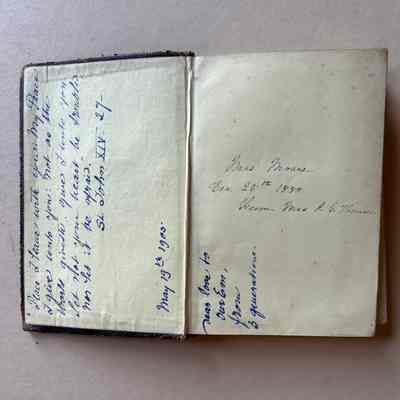 Peace I leave with you, My Peace
I give unto you: not as the
World giveth, give I unto you
Let not your heart be troubled
nor let it be afraid.
St John XIV. 27-
May 19th 1903.
Dec. 25th
From Mrs
dear love to
our
from
3 generations.